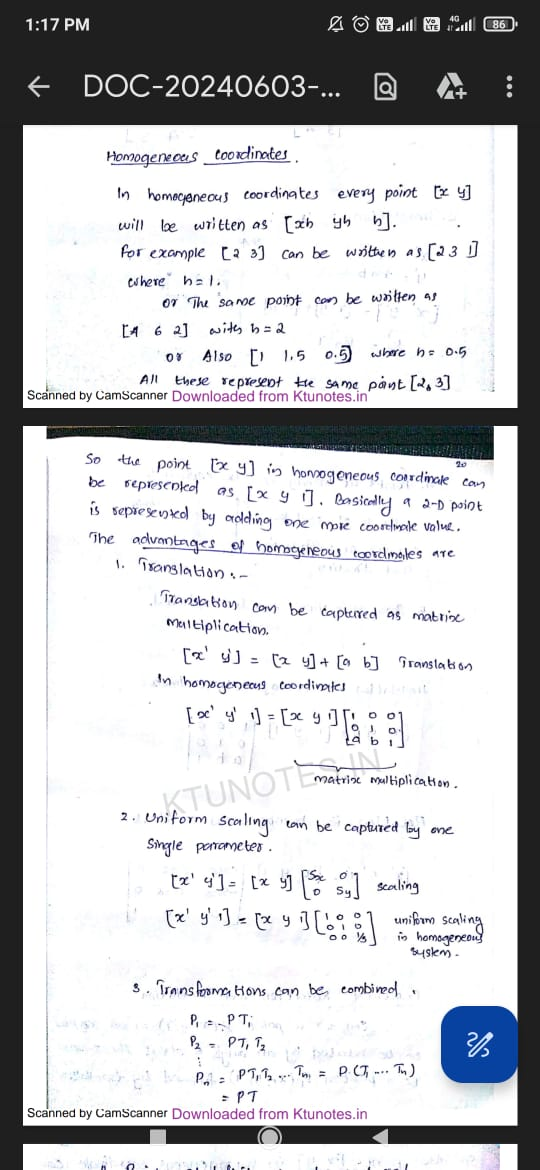 1:17 PM
Vo LTE Vo LTE 4G 86
DOC-20240603-...
Homogeneous Coordinates.
In homogeneous coordinates every point [x y]
will be written as [xh yh h].
for example [2 3] can be written as [2 3 1]
where h=1.
or The same point can be written as
[4 6 2] with h=2
or Also [1 1.5 0.5] where h= 0.5
All these represent the same point [2, 3]
Scanned by CamScanner Downloaded from Ktunotes.in
20
So the point [x y] in homogeneous coordinate can
be represented as [x y 1]. Basically a 2-D point
is represented by adding one more coordinate value.
The advantages of homogeneous coordinates are
1. Translation :-
Translation can be captured as matrix
multiplication.
[x' y'] = [x y] + [a b] Translation
In homogeneous coordinates
[x' y' 1] = [x y 1] [1 0 0
0 1 0
a b 1]
matrix multiplication.
KTUNOTES.IN
2. Uniform scaling can be captured by one
single parameter.
[x' y'] = [x y] [Sx 0
0 Sy] scaling
[x' y' 1] = [x y 1] [1 0 0
0 1 0
0 0 1/s] uniform scaling
in homogeneous
system.
3. Transformations can be combined.
P1 = PT1
P2 = PT1 T2
⋮
Pn = PT1T2... Tn = P(T1 ... Tn)
= PT
Scanned by CamScanner Downloaded from Ktunotes.in